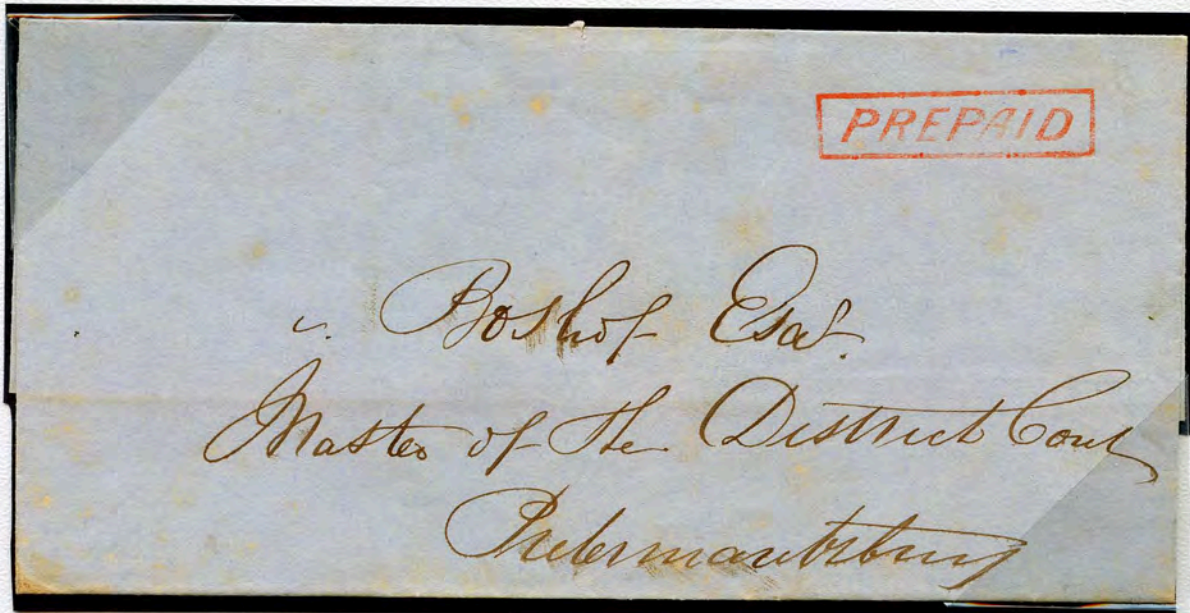 PREPAID
Boshof Esqr.
Master of the District Court
Pietermaritzburg